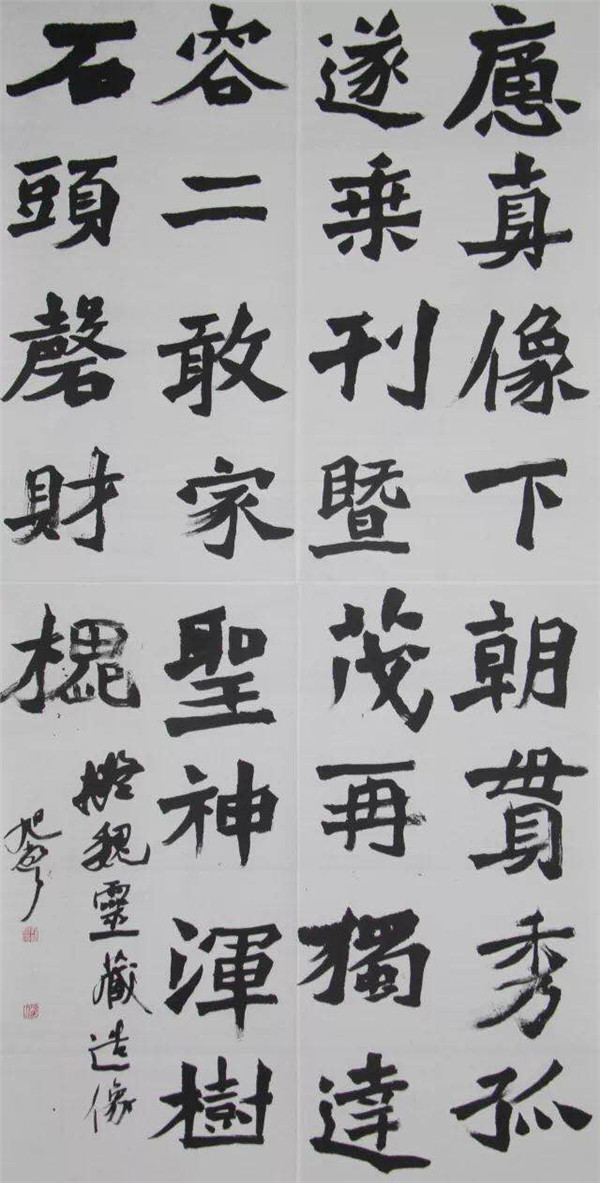 應真像下朝貫秀孤
遂乗刊暨茂再獨達
容二敢家聖神渾樹
石頭磬財槐
擬魏靈藏造像